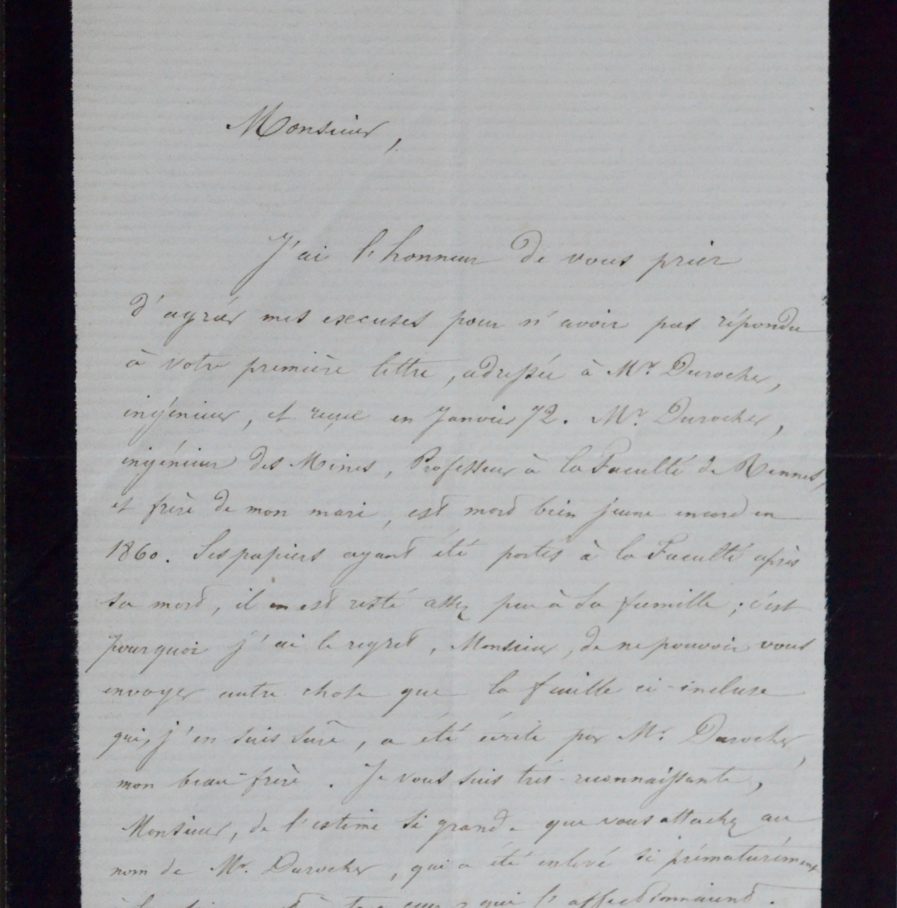 Monsieur,
J'ai l'honneur de vous prier
d'agréer mes excuses pour n'avoir pas répondu
à votre première lettre, adressée à Mr. Durocher,
ingénieur, et reçue en Janvier 72. Mr. Durocher,
ingénieur des Mines, Professeur à la Faculté de Rennes,
et frère de mon mari, est mort bien jeune encore en
1860. Ses papiers ayant été portés à la Faculté après
sa mort, il en est resté assez peu à sa famille ; c'est
pourquoi j'ai le regret, Monsieur, de ne pouvoir vous
envoyer autre chose que la feuille ci-incluse
qui, j'en suis sûre, a été écrite par Mr. Durocher,
mon beau-frère. Je vous suis très-reconnaissante,
Monsieur, de l'estime si grande que vous attachez au
nom de Mr. Durocher, qui a été enlevé si prématurément
à tous ceux qui l'affectionnaient.